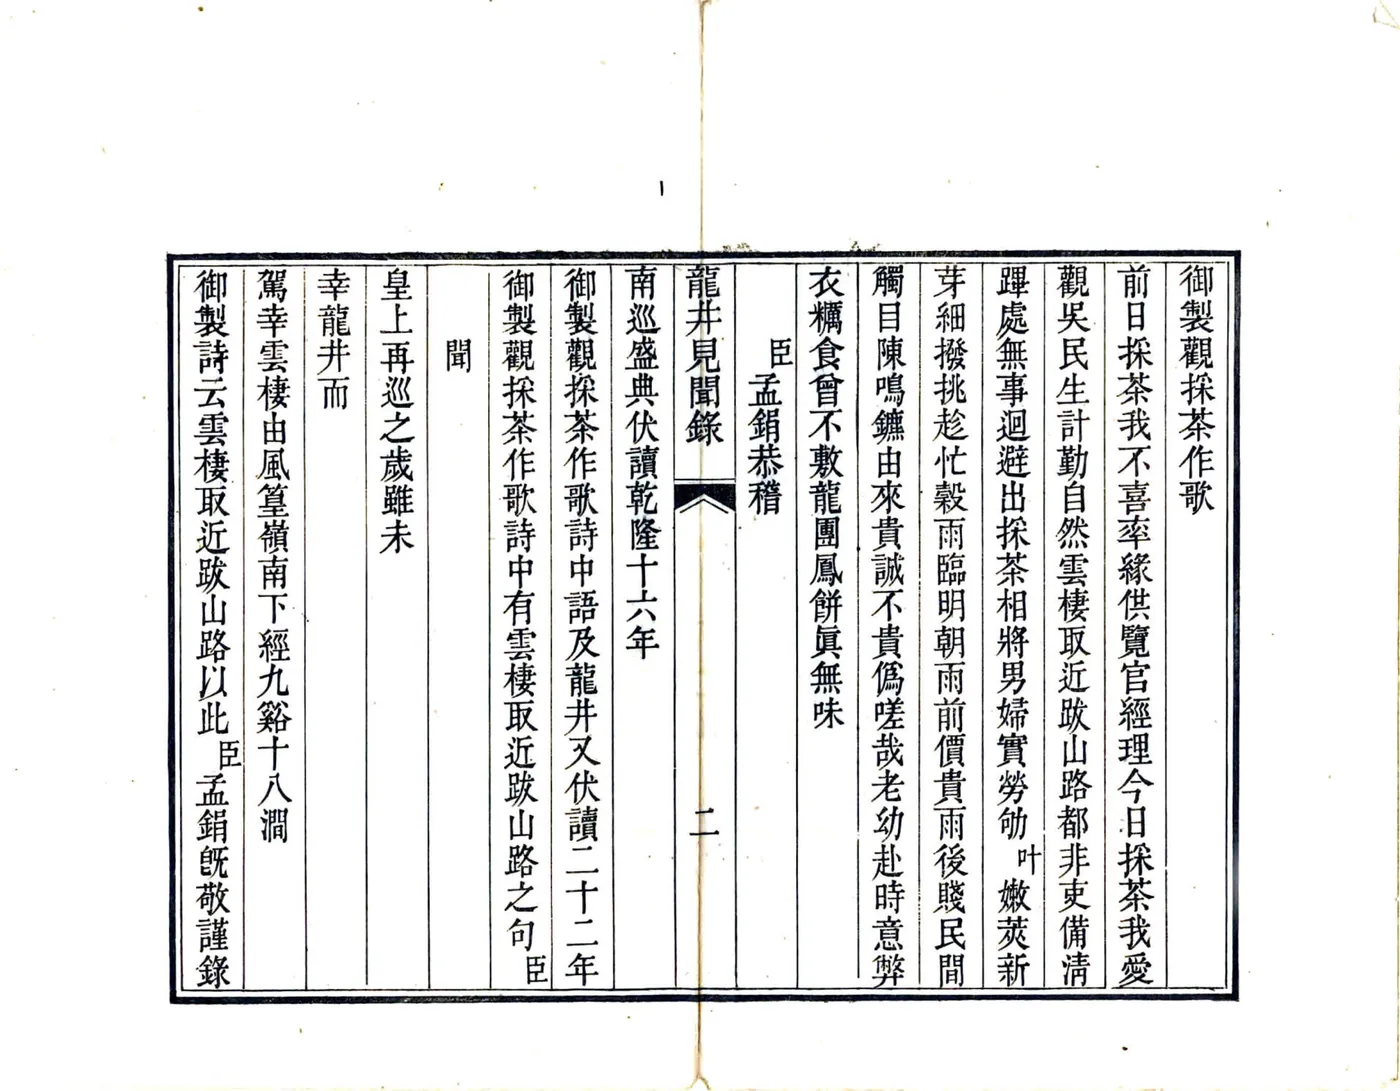 御製觀採茶作歌
前日採茶我不喜率緣供覽官經理今日採茶我愛
觀吳民生計勤自然雲棲取近跋山路都非吏備清
蹕處無事迴避出採茶相將男婦實勞劬叶嫩莢新
芽細撥挑趁忙穀雨臨明朝雨前價貴雨後賤民閒
觸目陳鳴鑣由來貴誠不貴僞嗟哉老幼赴時意弊
衣糲食曾不敷龍團鳳餅眞無味
臣孟鋗恭稽
龍井見聞錄
二
南巡盛典伏讀乾隆十六年
御製觀採茶作歌詩中語及龍井又伏讀二十二年
御製觀採茶作歌詩中有雲棲取近跋山路之句臣
聞
皇上再巡之歲雖未
幸龍井而
駕幸雲棲由風篁嶺南下經九谿十八澗
御製詩云雲棲取近跋山路以此臣孟鋗旣敬謹錄